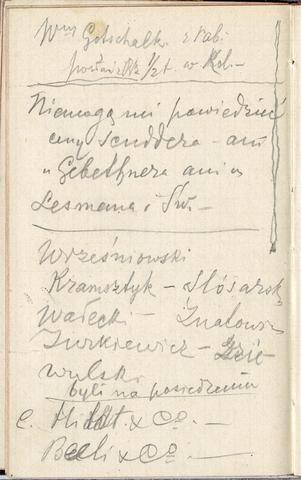 Gotschalk. z Kal.
½ t. w Kol. —
Niemogą mi powiedzieć
ceny Scuddera - ani
u Gebethnera ani u
Lesmana i Św. —
Wrześniowski
Kramsztyk — Slósarsk
Wałecki — Znatowi
Jurkiewicz — Dzie
wulski
byli na posiedzeniu
C. & Co. —
& Co. —